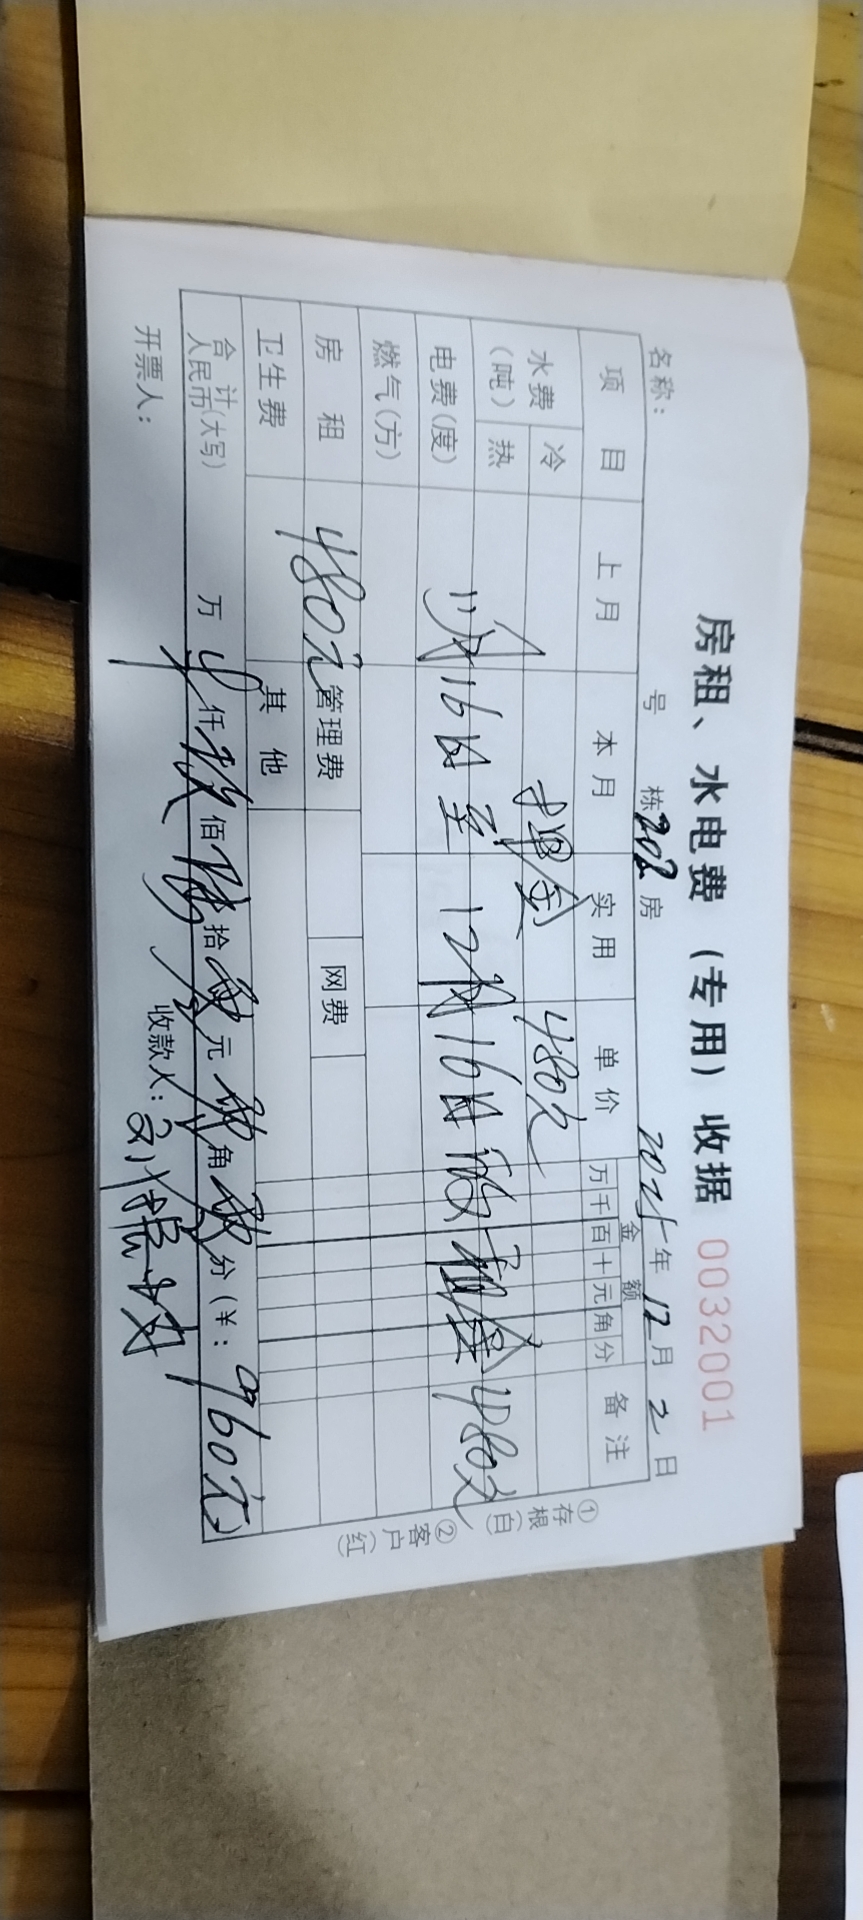 房租、水电费（专用）收据 0032001
名称： 号 栋 202 房 2025 年 12 月 2 日
项目 上月 本月 实用 单价 金额 备注
万 千 百 十 元 角 分
水费（吨） 冷 押金 480元
热
电费（度） 11月16日至12月16日 租金480元
燃气（方）
房租 480元 管理费 网费
卫生费 其他
合计人民币（大写） 万 仟 玖 佰 陆 拾 零 元 零 角 零 分（￥： 960元）
开票人： 收款人：
①存根（白） ②客户（红）